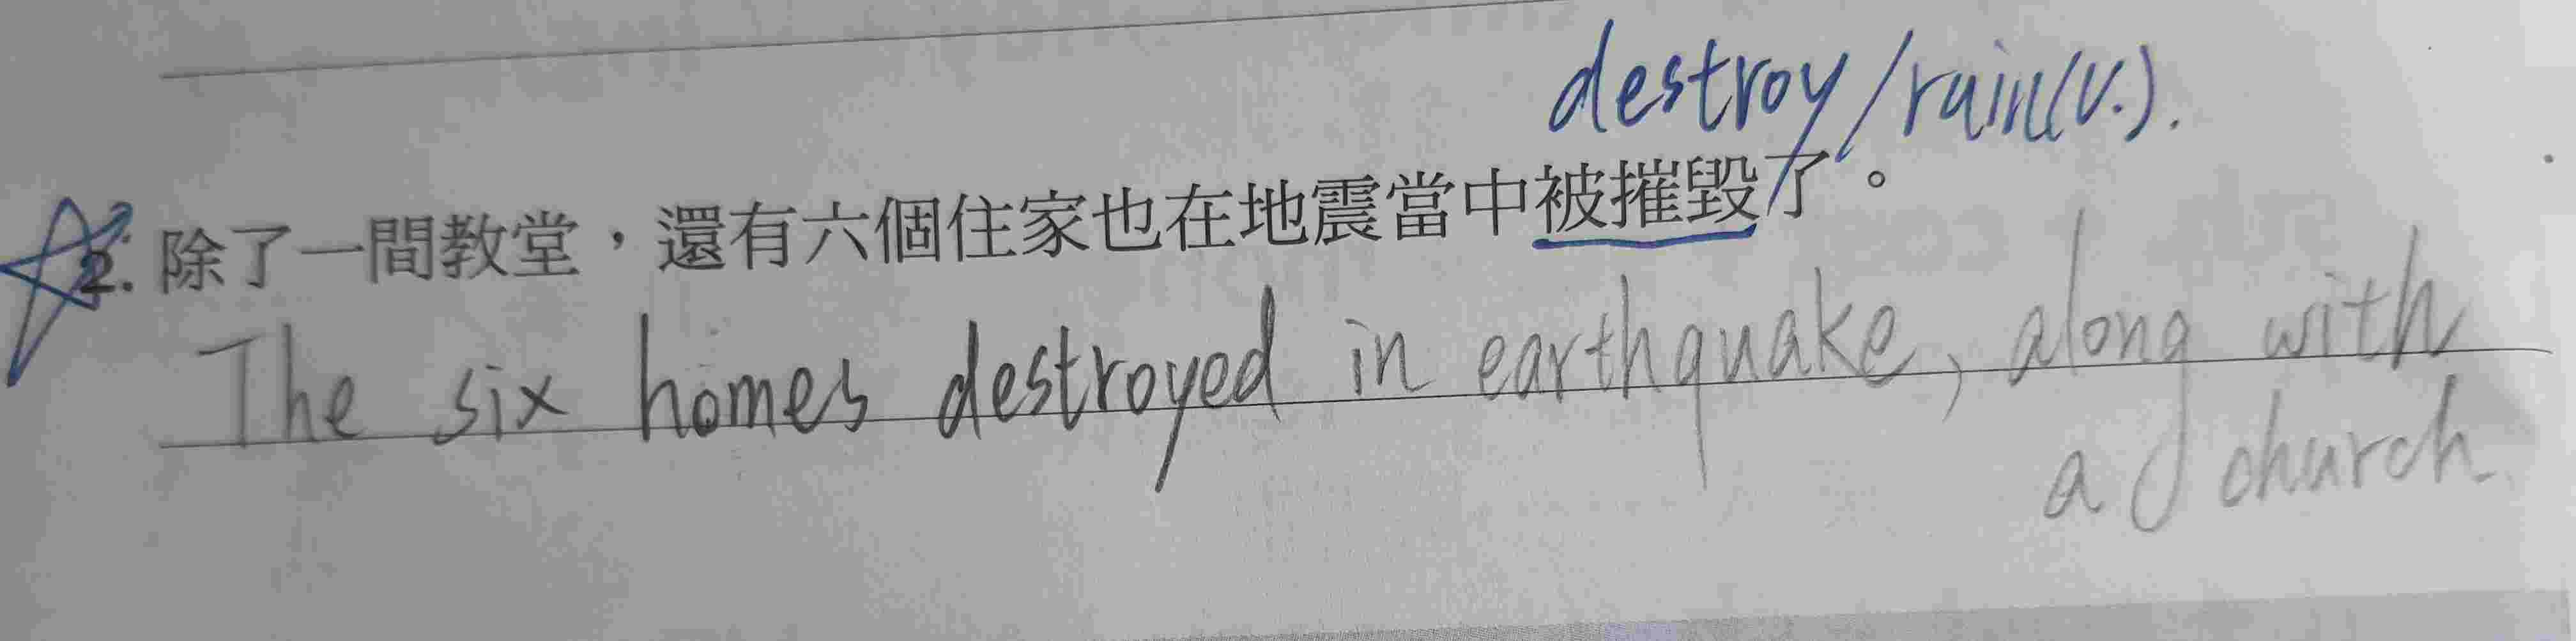 destroy/ruin(v.).
2. 除了一間教堂，還有六個住家也在地震當中被摧毀了。
The six homes destroyed in earthquake, along with
a church